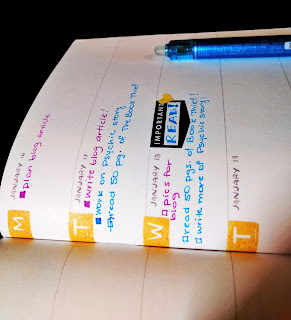 M
JANUARY
plan blog article
T
JANUARY
write blog article!
work on psychic story
read 50 pg. of The Book Thief
W
JANUARY
pics for
blog
read 50 pgs. of Book Thief!
write more of Psychic story!
IMPORTANT
READ!
T
JANUARY